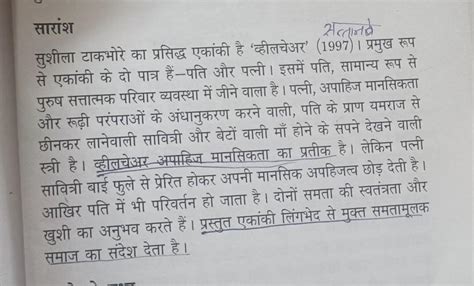 सारांश
सुशीला टाकभोरे का प्रसिद्ध एकांकी है ‘व्हीलचेअर’ (1997)। प्रमुख रूप
से एकांकी के दो पात्र हैं–पति और पत्नी। इसमें पति, सामान्य रूप से
पुरुष सत्तात्मक परिवार व्यवस्था में जीने वाला है। पत्नी, अपाहिज मानसिकता
और रूढ़ी परंपराओं के अंधानुकरण करने वाली, पति के प्राण यमराज से
छीनकर लानेवाली सावित्री और बेटों वाली माँ होने के सपने देखने वाली
स्त्री है। व्हीलचेअर अपाहिज मानसिकता का प्रतीक है। लेकिन पत्नी
सावित्री बाई फुले से प्रेरित होकर अपनी मानसिक अपाहिजत्व छोड़ देती है।
आखिर पति में भी परिवर्तन हो जाता है। दोनों समता की स्वतंत्रता और
खुशी का अनुभव करते हैं। प्रस्तुत एकांकी लिंगभेद से मुक्त समतामूलक
समाज का संदेश देता है।